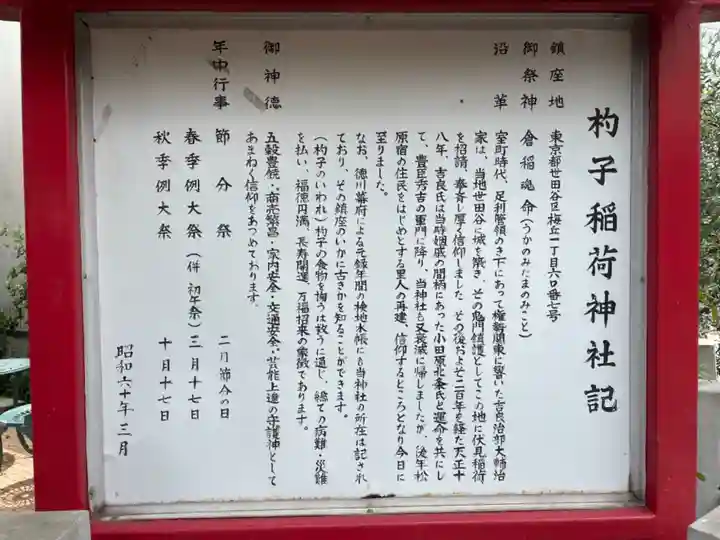 杓子稲荷神社記
鎮座地 東京都世田谷区梅丘一丁目六〇番七号
御祭神 倉稲魂命(うかのみたまのみこと)
沿革 室町時代、足利管領の下にあって権勢関東に響いた吉良治部大輔治
家は、当地世田谷に城を築き、その鬼門鎮護としてこの地に伏見稲荷
を招請、奉斎し厚く信仰しました。その後およそ二百年を経た天正十
八年、吉良氏は当時姻戚の間柄にあった小田原北条氏と運命を共にし
て、豊臣秀吉の軍門に降り、当神社も又衰滅に帰しましたが、後年松
原宿の住民をはじめとする里人の再建、信仰するところとなり今日に
至りました。
なお、徳川幕府による元禄年間の検地水帳にも当神社の所在は記され
ており、その鎮座のいかに古きかを知ることができます。
(杓子のいわれ)杓子の食物を掬うは救うに通じ、総ての病難・災難
を払い、福徳円満、長寿開運、万福招来の象徴であります。
御神徳 五穀豊饒・商売繁昌・家内安全・交通安全・芸能上達の守護神として
あまねく信仰をあつめております。
年中行事 節分祭 二月節分の日
春季例大祭(併 初午祭)三月十七日
秋季例大祭 十月十七日
昭和六十年三月